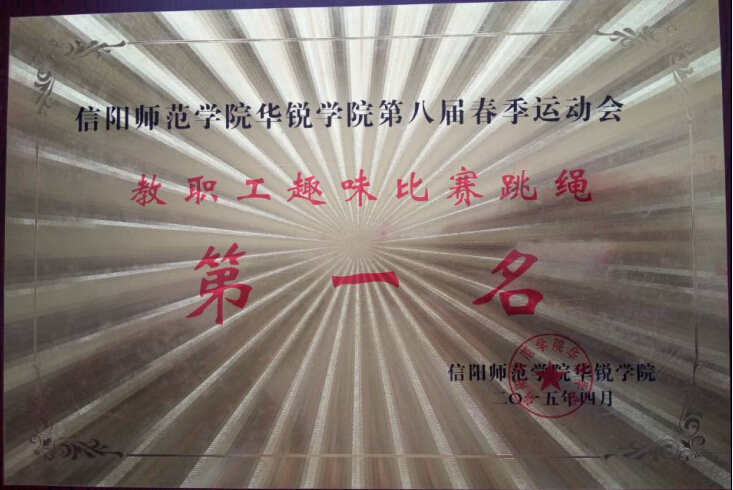 信阳师范学院华锐学院第八届春季运动会
教职工趣味比赛跳绳
第一名
信阳师范学院华锐学院
二〇一五年四月